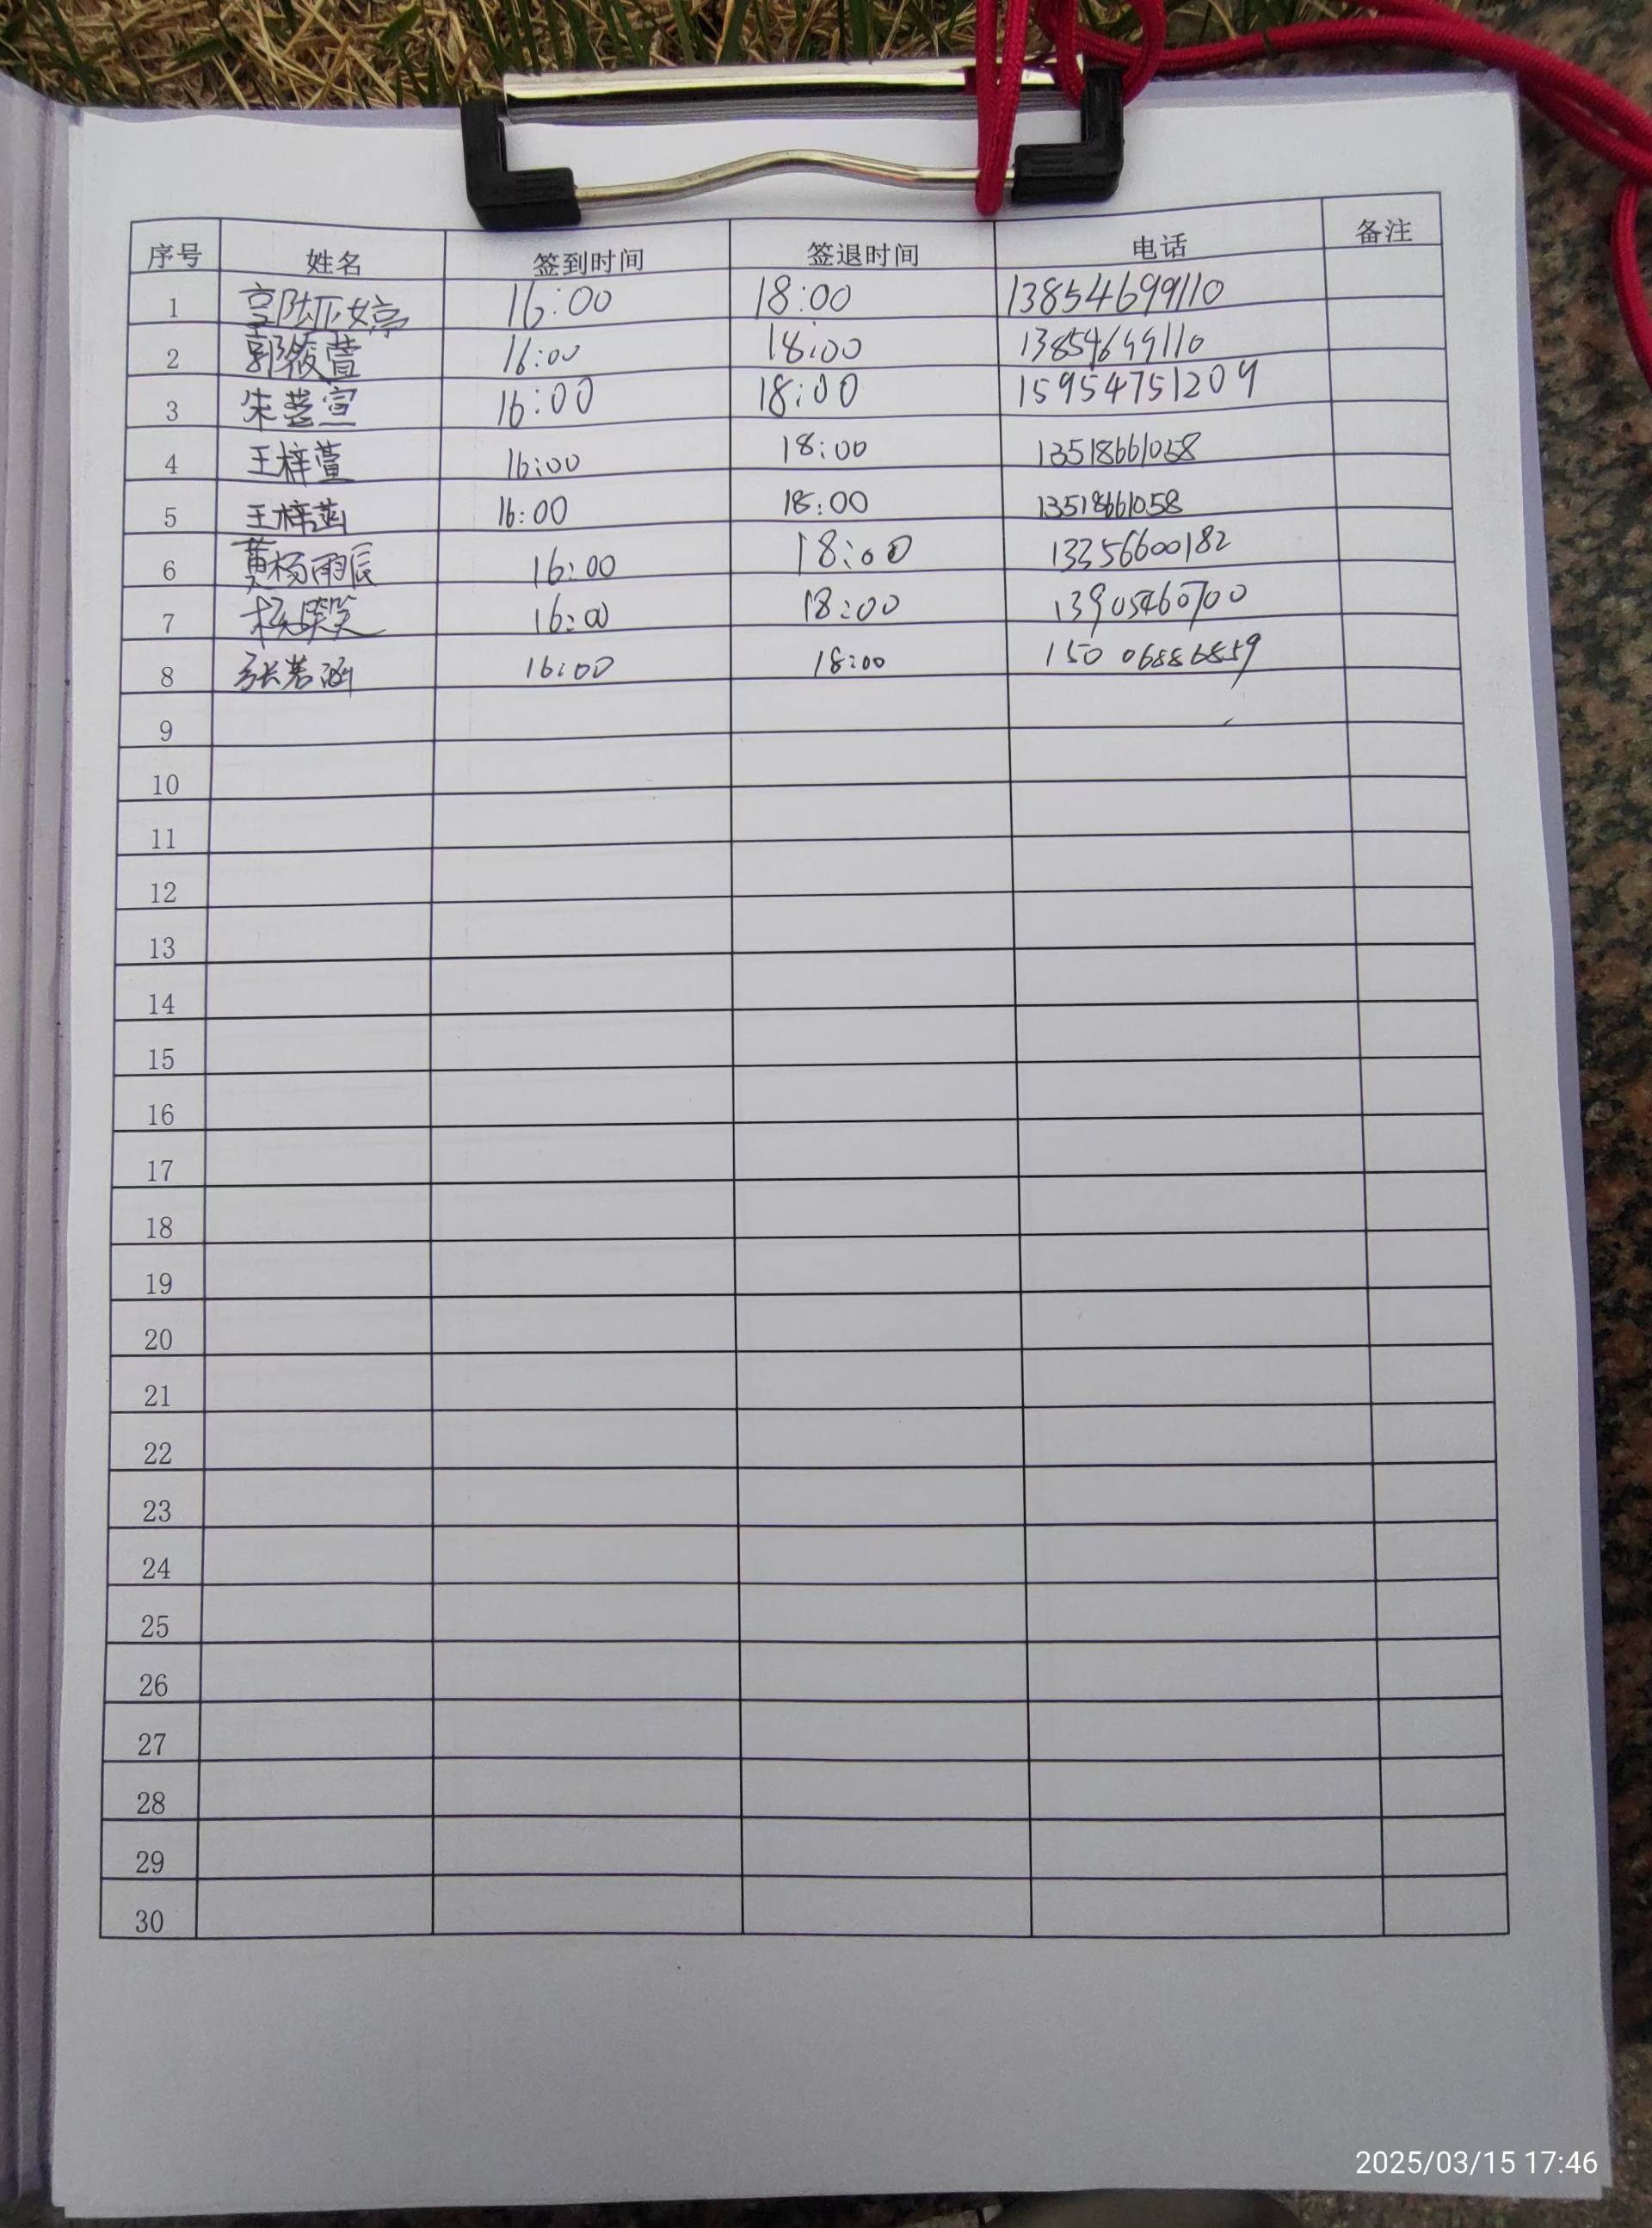 序号 姓名 签到时间 签退时间 电话 备注
1 16:00 18:00 13854699110
2 郭筱萱 16:00 18:00 13854699110
3 朱芸萱 16:00 18:00 15954751209
4 王梓萱 16:00 18:00 13518661058
5 王梓菡 16:00 18:00 13518661058
6 黄杨雨辰 16:00 18:00 13356600182
7 16:00 18:00 13905460700
8 张若涵 16:00 18:00 150 06886859
9
10
11
12
13
14
15
16
17
18
19
20
21
22
23
24
25
26
27
28
29
30
2025/03/15 17:46